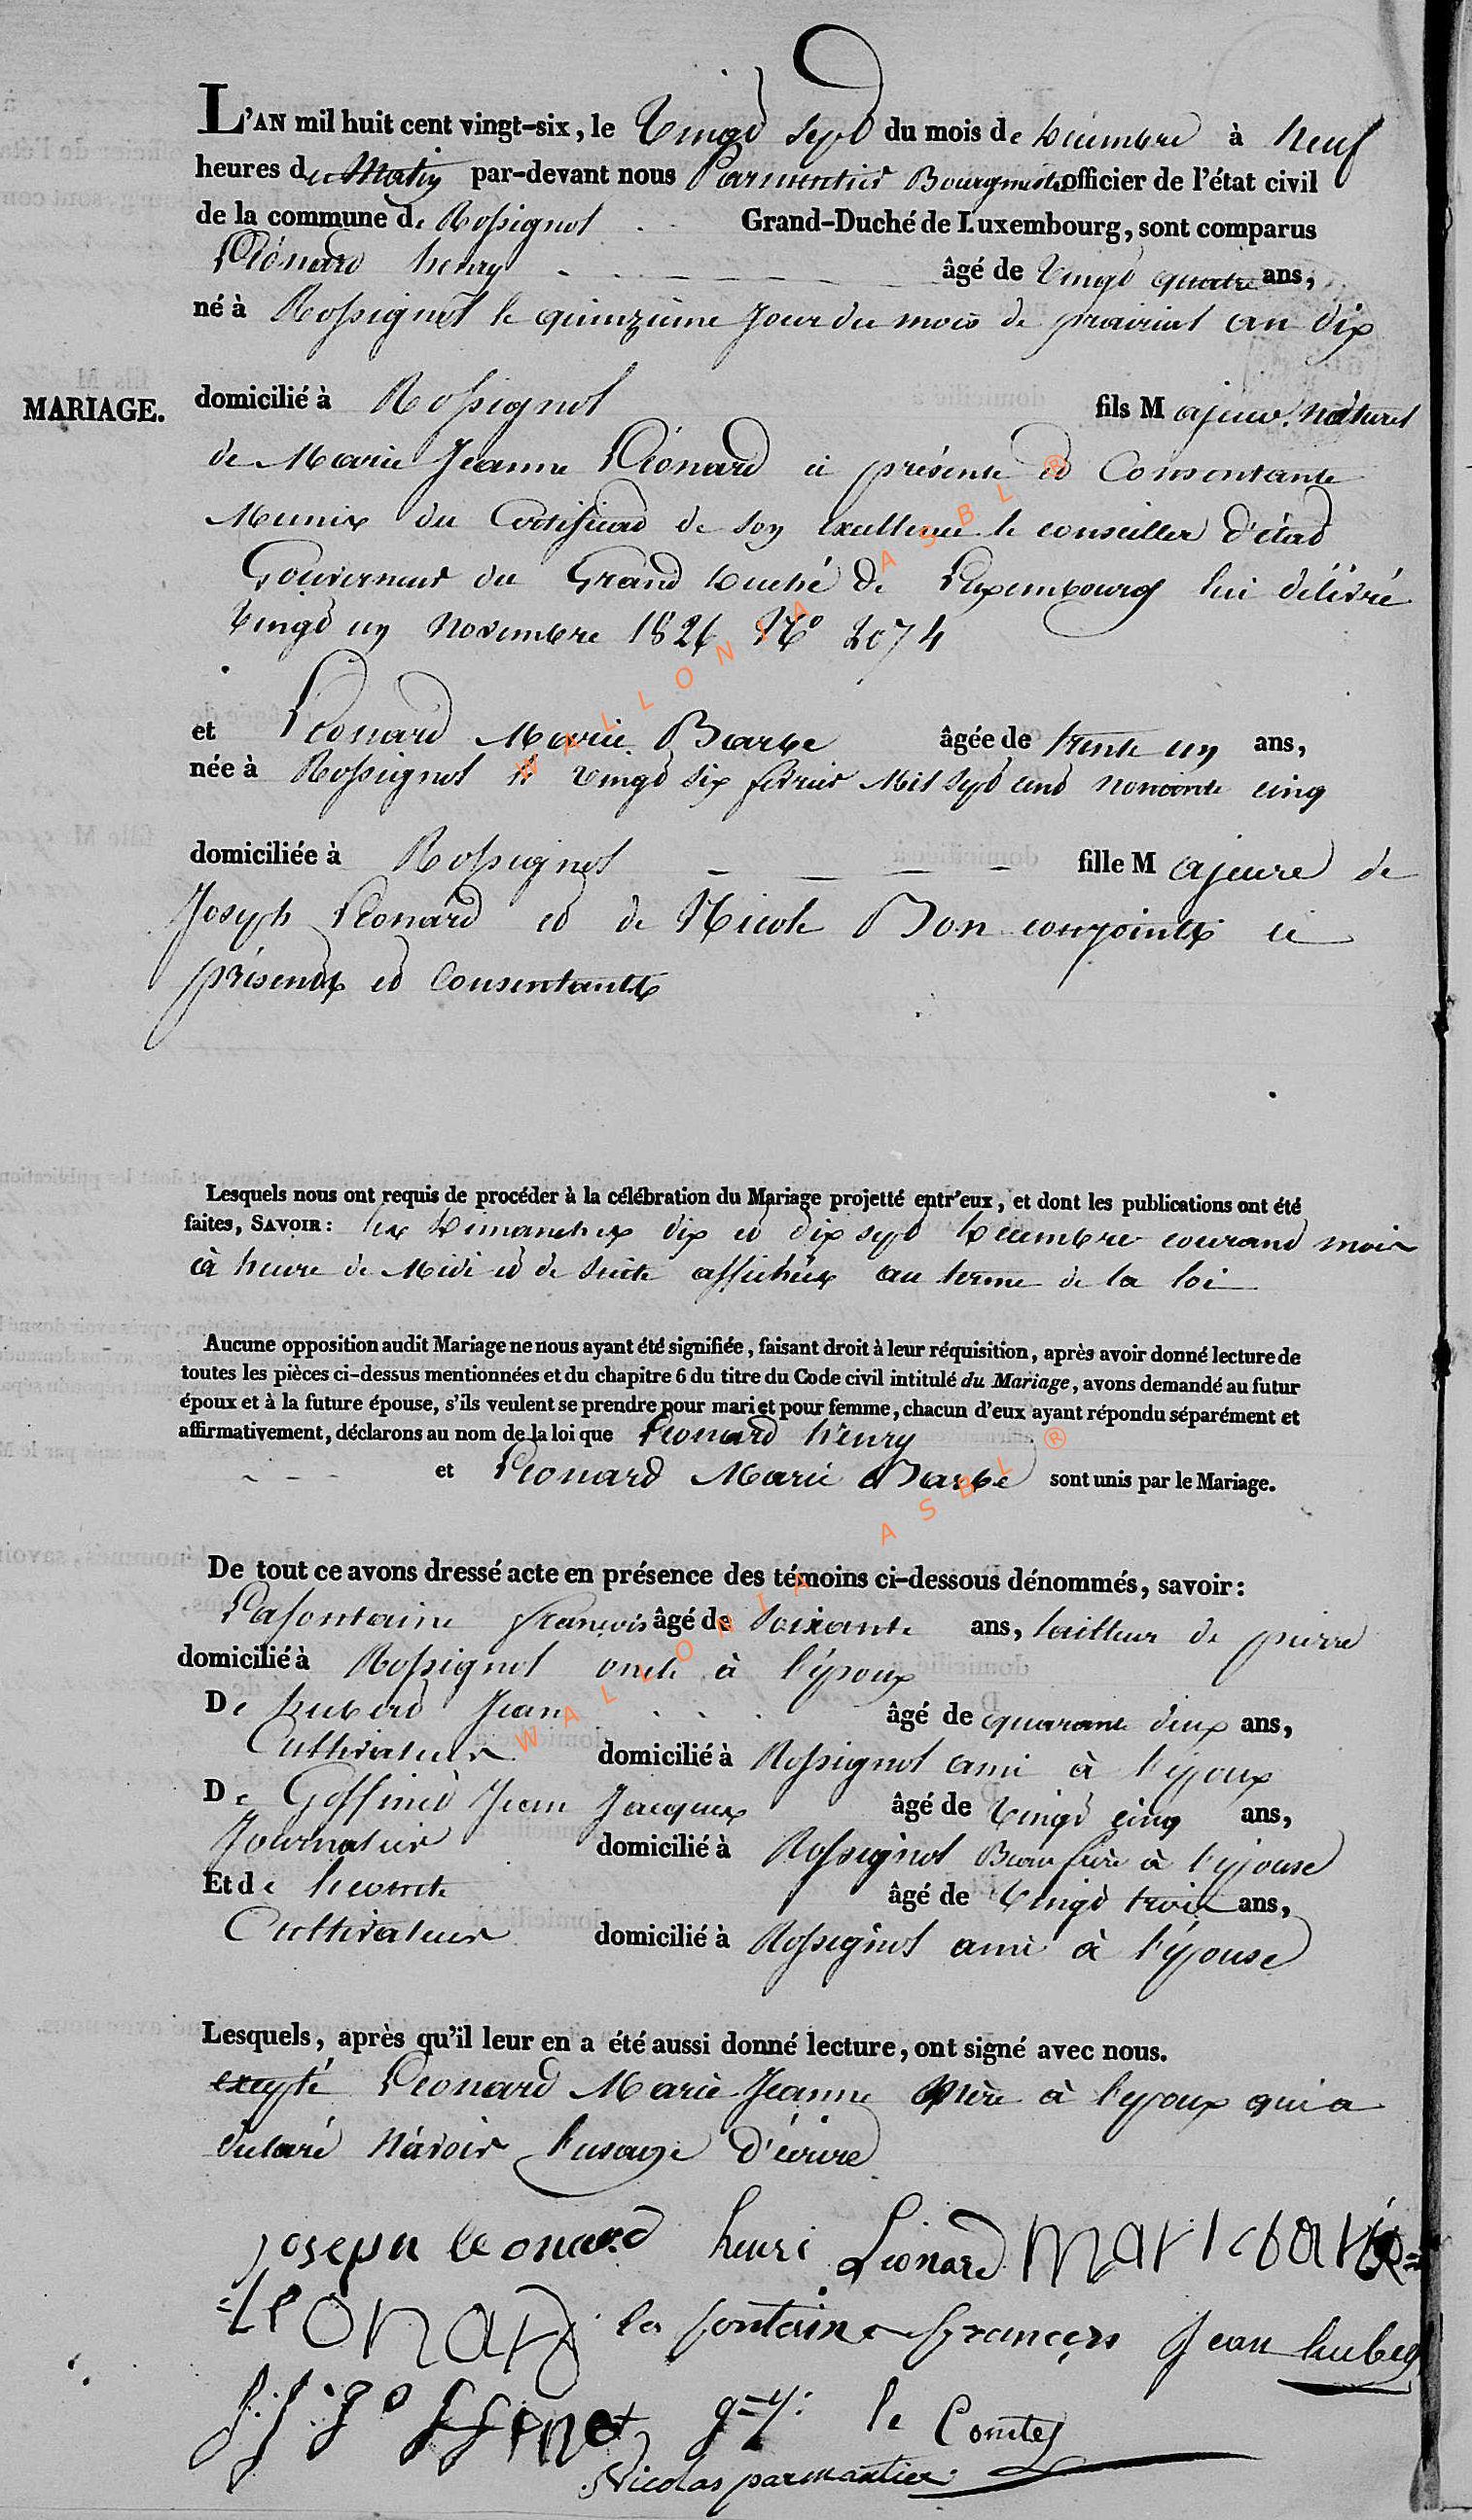 L'AN mil huit cent vingt-six, le Vingt Sept du mois de Décembre à Neuf
heures du Matin par-devant nous Parmentier Bourgmestre officier de l'état civil
de la commune de Rossignol Grand-Duché de Luxembourg, sont comparus
Léonard henry âgé de Vingt quatre ans,
né à Rossignol le quinzième Jour du mois de prairial an dix
MARIAGE.
domicilié à Rossignol fils Majeur naturel
de Marie Jeanne Léonard ci présente et Consentante
Munix du Certificat de son Excellence le conseiller d'état
Gouverneur du Grand Duché de Luxembourg lui délivré
Vingt un Novembre 1826 No 2074
et Léonard Marie Barbe âgée de trente un ans,
née à Rossignol le vingt six février Mil sept cent nonante cinq
domiciliée à Rossignol fille Majeure de
Joseph Léonard et de Nicole Bon conjoints ci
présents et Consentants
Lesquels nous ont requis de procéder à la célébration du Mariage projetté entr'eux, et dont les publications ont été
faites, SAVOIR : les Dimanches dix et dix sept Décembre courant mois
à heure de Midi et de suite affichées au terme de la loi
Aucune opposition audit Mariage ne nous ayant été signifiée, faisant droit à leur réquisition, après avoir donné lecture de
toutes les pièces ci-dessus mentionnées et du chapitre 6 du titre du Code civil intitulé du Mariage, avons demandé au futur
époux et à la future épouse, s'ils veulent se prendre pour mari et pour femme, chacun d'eux ayant répondu séparément et
affirmativement, déclarons au nom de la loi que Léonard henry
et Léonard Marie Barbe sont unis par le Mariage.
De tout ce avons dressé acte en présence des témoins ci-dessous dénommés, savoir :
Lafontaine françois âgé de Soixante ans, tailleur de pierre
domicilié à Rossignol oncle à l'époux
De hubert Jean âgé de quarante deux ans,
Cultivateur domicilié à Rossignol ami à l'époux
De Goffinet Jean Jacques âgé de Vingt cinq ans,
Journalier domicilié à Rossignol Beau frère à l'épouse
Et de lecomte âgé de Vingt trois ans,
Cultivateur domicilié à Rossignol ami à l'épouse
Lesquels, après qu'il leur en a été aussi donné lecture, ont signé avec nous.
excepté Léonard Marie Jeanne Mère à l'époux qui a
déclaré N'avoir l'usage d'écrire
Joseph leonard henri Léonard Marie barbe=
=Leonard la fontaine françois Jean hubert
J. J. Goffinet le Comte
Nicolas parmantier
WALLONIA ASBL ®
WALLONIA ASBL ®